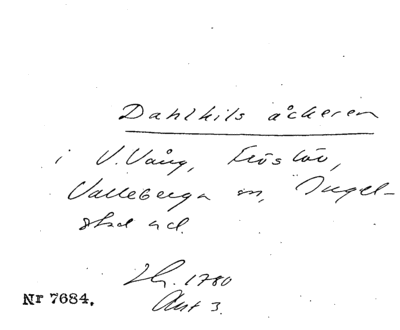 Dahlkils åckeren
i V. Vång, Fröslöv,
Valleberga sn, Ingel-
stad hd.
1780
Akt 3.
Nr 7684.